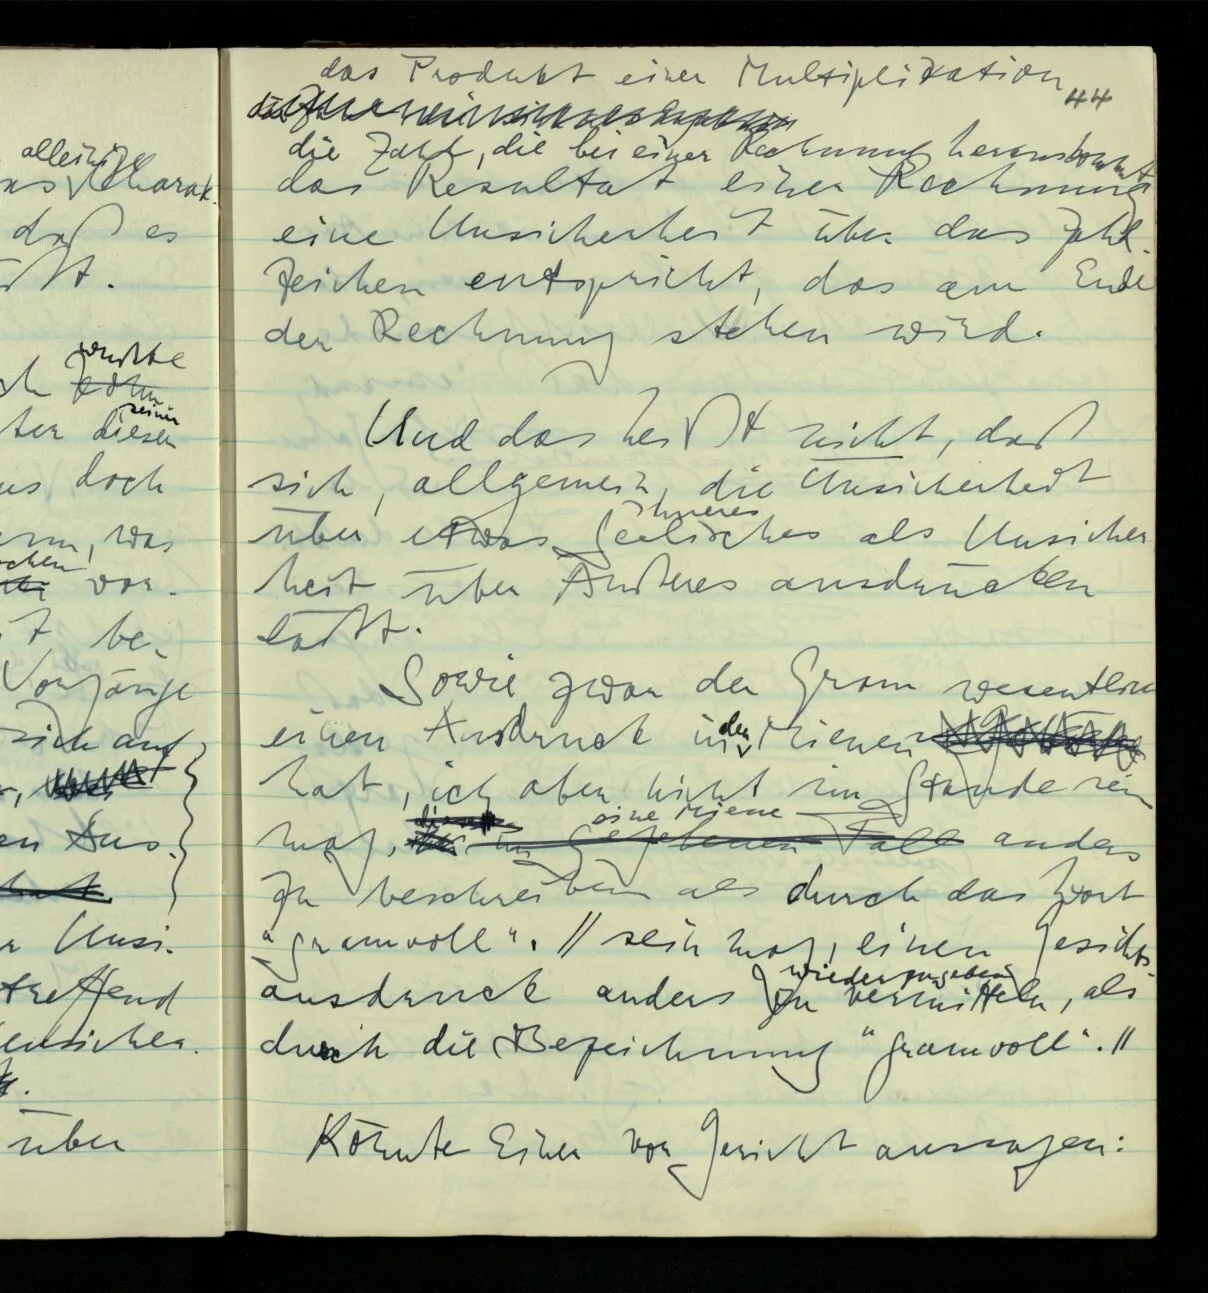 alleinige
Charak-
daß es
wußte
seiner
diesen
doch
, was
vor-
be-
Vorgänge
sich auf
Aus-
Unsi-
treffend
über
das Produkt einer Multiplikation
44
die Zahl, die bei einer Rechnung herauskommt
das Resultat einer Rechnung
eine Unsicherheit über das Zahl-
zeichen entspricht, das am Ende
der Rechnung stehen wird.
Und das heißt nicht, daß
sich, allgemein, die Unsicherheit
inneres
über etwas Seelisches als Unsicher
heit über Äußeres ausdrücken
läßt.
Sowie zwar der Gram wesentlich
einen Ausdruck in den Mienen
hat, ich aber nicht im Stande sein
eine Miene
mag, im gegebenen Fall anders
zu beschreiben als durch das Wort
"gramvoll". // sein mag, einen Gesichts-
wiederzugeben
ausdruck anders zu vermitteln, als
durch die Bezeichnung "gramvoll". //
Könnte Einer vor Gericht aussagen: